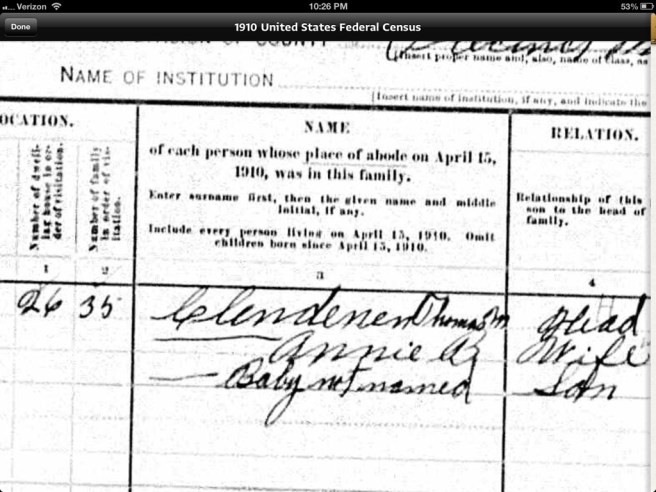 Verizon 10:26 PM 53%
Done 1910 United States Federal Census
NAME OF INSTITUTION
(Insert proper name and, also, name of class, as
[Insert name of institution, if any, and indicate the
OCATION.
Number of dwelling house in order of visitation.
Number of family in order of visitation.
NAME
of each person whose place of abode on April 15,
1910, was in this family.
Enter surname first, then the given name and middle
initial, if any.
Include every person living on April 15, 1910. Omit
children born since April 15, 1910.
RELATION.
Relationship of this
son to the head of
family.
1 2 3 4
26 35 Clendenen Thomas M Head
Annie A Wife
— Baby not named Son